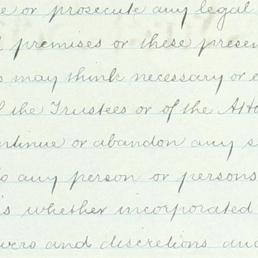 or prosecute any legal
premises or these presen
may think necessary or
the Trustees or of the Atto
ontinue or abandon any s
any person or persons
is whether incorporated
wers and discretions and